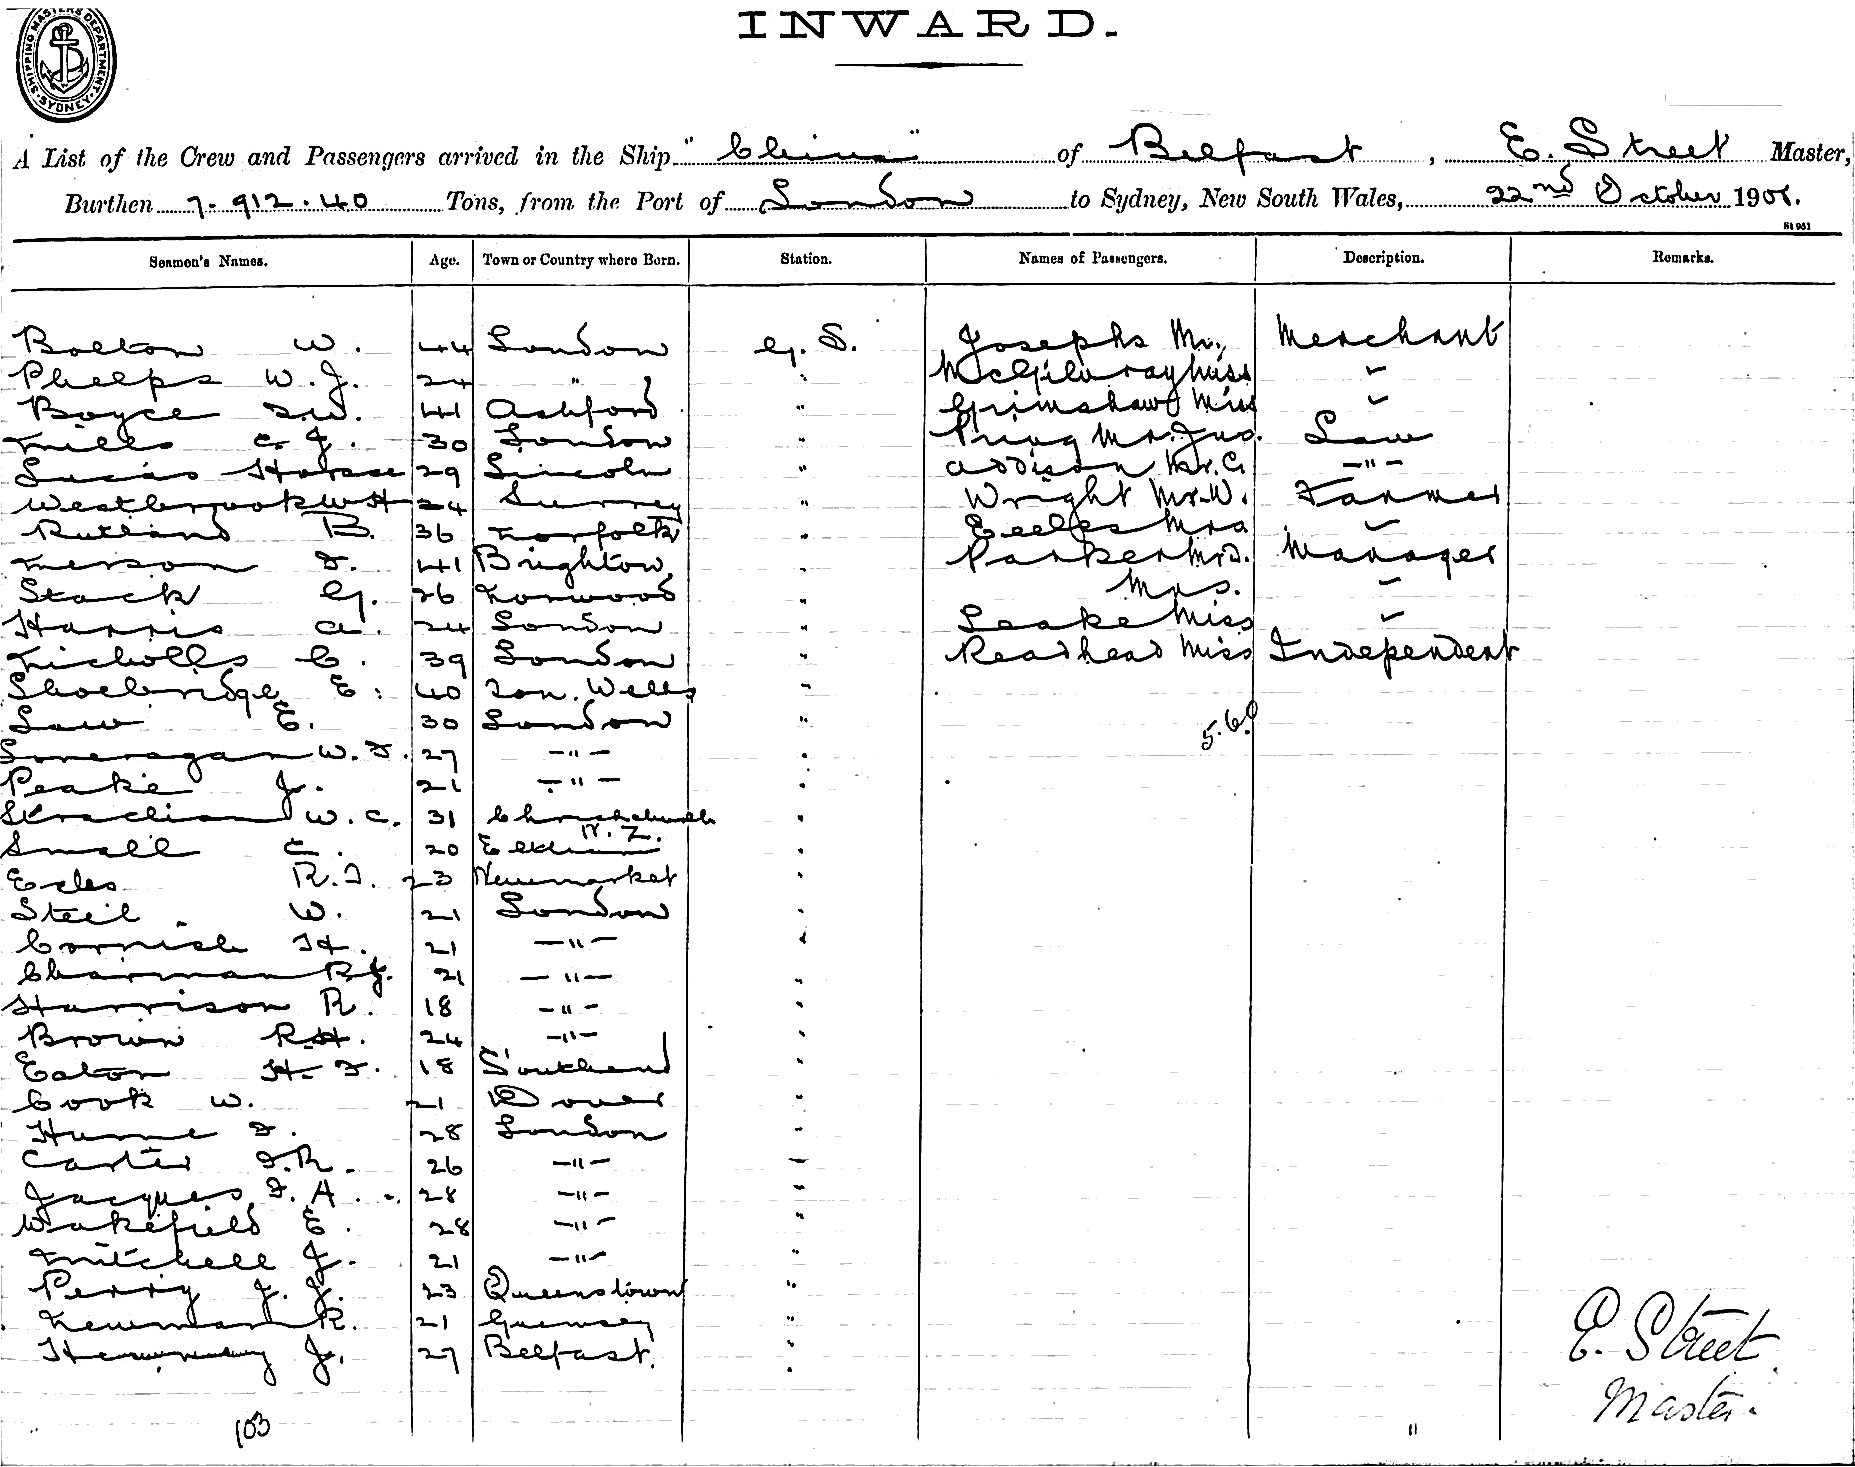 INWARD.
SHIPPING MASTERS DEPARTMENT. SYDNEY
A List of the Crew and Passengers arrived in the Ship "China" of Belfast, E. Street Master,
Burthen 7.912.40 Tons, from the Port of London to Sydney, New South Wales, 22nd October 190
Seamen's Names. Age. Town or Country where Born. Station. Names of Passengers. Description. Remarks.
Bolton W. 44 London G. S. Josephs Mr., Merchant
Phelps W. J. 24 " " McGilvray Miss "
Boyce 41 Ashford " Grimshaw Miss "
Mills C. J. 30 London " Pring Mr. Jno. Law
Lucas Horace 29 Lincoln " Addison Mr. C. -"-
Westbrook W H 24 Surrey " Wright Mr. W. Farmer
Rutland B. 36 Norfolk " Eccles Mrs "
F. 41 Brighton " Parker Mr. Manager
Stack G. 26 Norwood " Mrs. "
Harris A. 24 London " Leake Miss "
Nicholls C. 39 London " Readhead Miss Independent
Shoebridge E. 40 Wells "
Law E. 30 London " 5.6.0
Loneragan W. F. 27 -"- "
Peake J. 21 -"- "
Strachan W. C. 31 Christchurch N. Z. "
Small C. 20 Eltham "
Ecles R. F. 23 Newmarket "
Steil W. 21 London "
Cornish H. 21 -"- "
Charman R. J. 21 -"- "
Harrison R. 18 -"- "
Brown R H. 24 -"- "
Eaton H. F. 18 Southend "
Cook W. 21 Dover "
Hume F. 28 London "
Carter F. R. 26 -"- "
Jacques F. A. 28 -"- "
Wakefield E. 28 -"- "
Mitchell J. 21 -"- "
Perry J. J. 23 Queenstown "
Newman R. 21 Guernsey "
J. 27 Belfast. "
E. Street
Master.
103 11